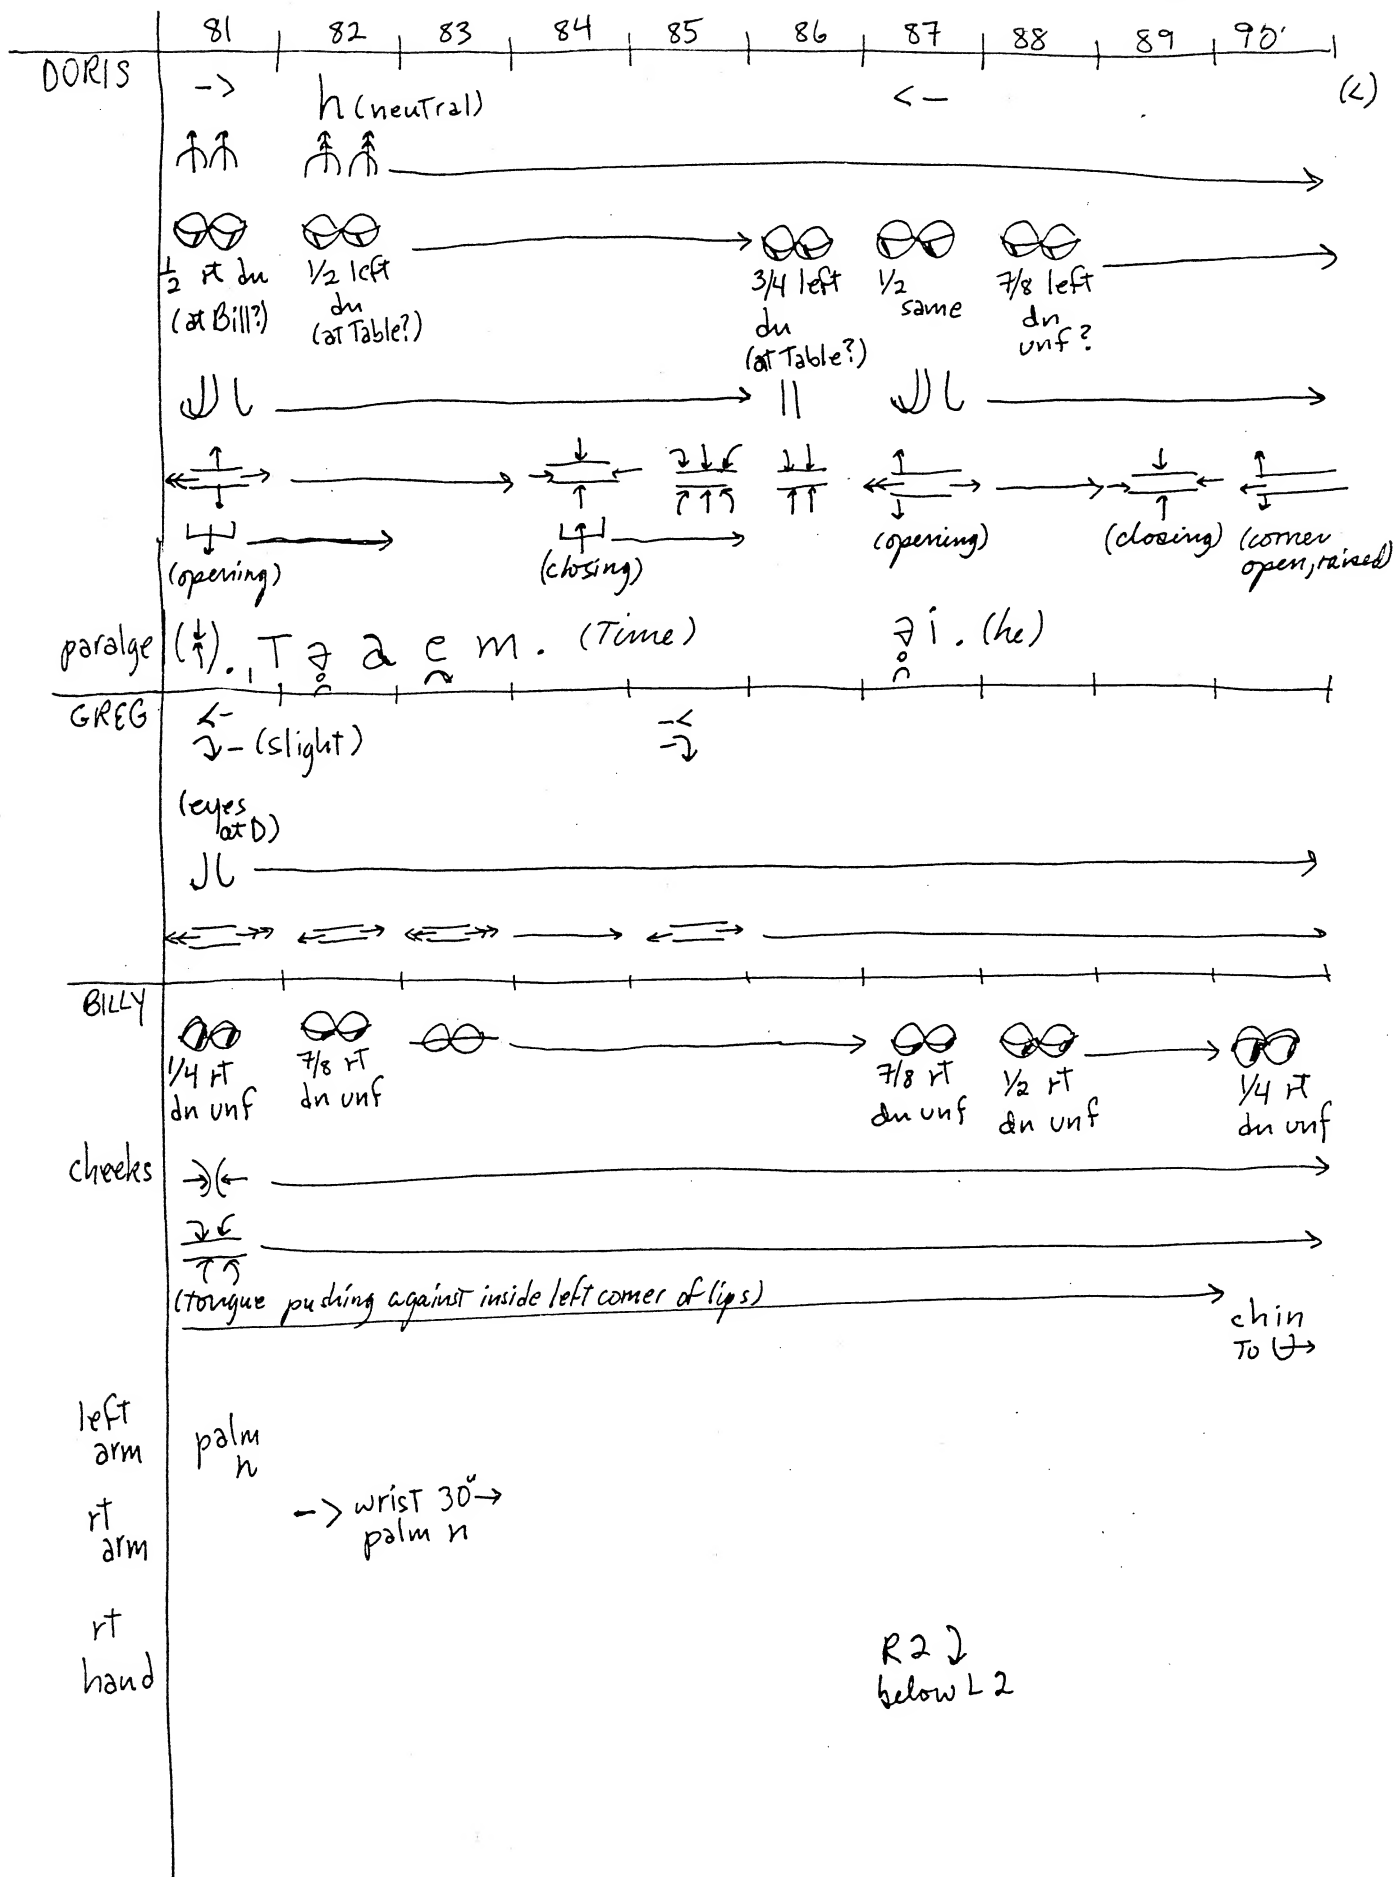 81 82 83 84 85 86 87 88 89 90
DORIS
h (neutral)
1/2 rt dn 1/2 left 3/4 left 1/2 7/8 left
(at Bill?) dn dn same dn
(at Table?) (at Table?) unf?
(opening) (closing) (opening) (closing) (corner
open, raised)
paralge T a e m. (Time) i. (he)
GREG
(slight)
(eyes
at D)
BILLY
1/4 rt 7/8 rt 7/8 rt 1/2 rt 1/4 rt
dn unf dn unf dn unf dn unf dn unf
cheeks
(tongue pushing against inside left corner of lips)
chin
To
left
arm
palm
n
rt
arm
wrist 30°
palm n
rt
hand
R2
below L2